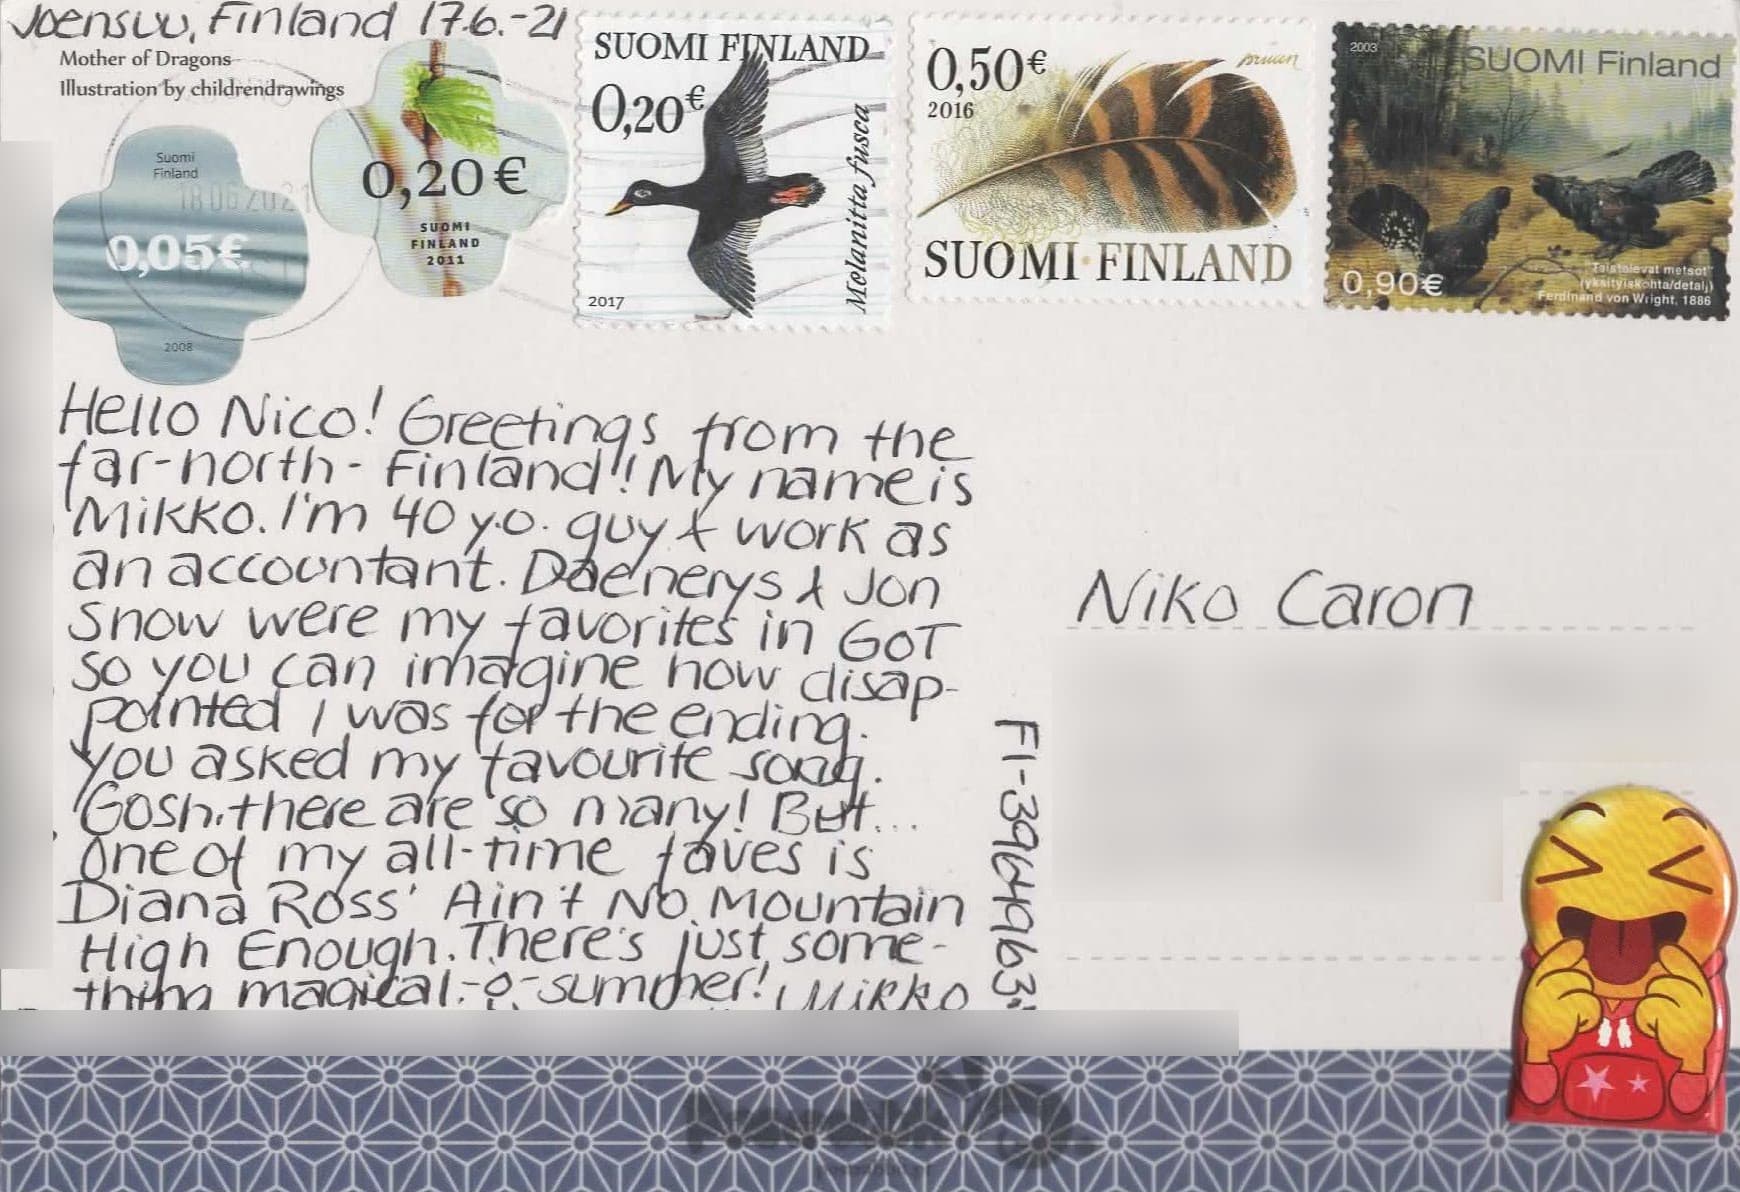 Joensuu, Finland 17.6.-21
Mother of Dragons
Illustration by childrendrawings
Suomi
Finland
18 06 2021
0,05€
2008
0,20€
SUOMI
FINLAND
2011
SUOMI FINLAND
0,20€
Melanitta fusca
2017
0,50€
2016
SUOMI FINLAND
2003
SUOMI Finland
0,90€
Taistelevat metsot
(yksityiskohta/detalj)
Ferdinand von Wright, 1886
Hello Nico! Greetings from the
far-north - Finland!! My name is
Mikko. I'm 40 y.o. guy & work as
an accountant. Daenerys & Jon
Snow were my favorites in GoT
so you can imagine how disap-
pointed I was for the ending.
You asked my favourite song.
Gosh, there are so many! But...
One of my all-time faves is
Diana Ross' Ain't No Mountain
High Enough. There's just some-
thing magical.-o-summer! Mikko
FI-3964963
Niko Caron